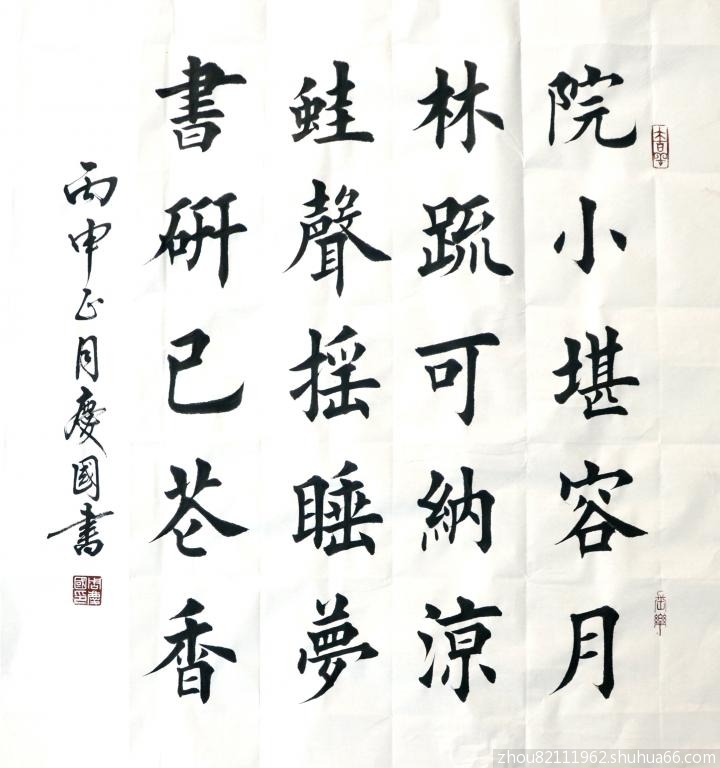 院小堪容月
林疏可納涼
蛙聲摇睡夢
書硏已苍香
丙申正月慶國書
周慶國印
zhou82111962.shuhua66.com